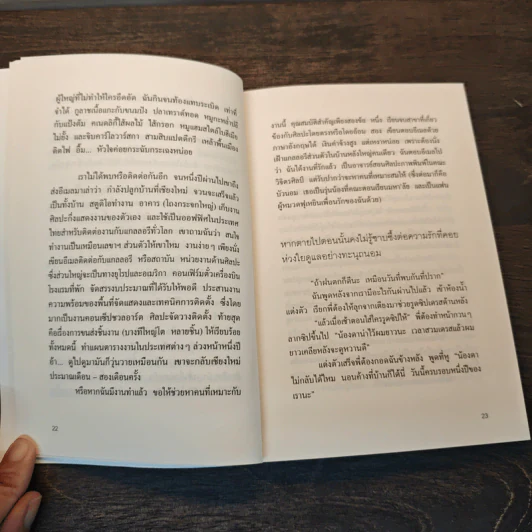 ผู้ใหญ่ที่ไม่ทำให้ใครอึดอัด ฉันกินจนท้องแทบระเบิด เท่าที่
จำได้ กูลาชเนื้อแกะกับขนมปัง ปลาเทราต์ทอด หมูกะหล่ำปลี
กับแป้งต้ม คเนดลิกี้ไส้ผลไม้ ไส้กรอก หมูแสมสไตล์โบฮีเมีย
ไม่ยั้ง และจิบคาร์โลวาร์สกา สามสิบแปดดีกรี เหล้าพื้นเมือง
ติดไฟ อื้ม... หัวใจค่อยกระฉับกระเฉงหน่อย
เราไม่ได้พบหรือติดต่อกันอีก จนหนึ่งปีผ่านไปเขาถึง
ส่งอีเมลมาเล่าว่า กำลังปลูกบ้านที่เชียงใหม่ จวนจะเสร็จแล้ว
เป็นทั้งบ้าน สตูดิโอทำงาน อาคาร (โถงกระจกใหญ่) เก็บงาน
ศิลปะกึ่งแสดงงานของตัวเอง และใช้เป็นออฟฟิศในประเทศ
ไทยสำหรับติดต่องานกับแกลลอรีทั่วโลก เขาถามฉันว่า สนใจ
ทำงานเป็นเหมือนเลขาฯ ส่วนตัวให้เขาไหม งานง่าย ๆ เพียงนั่ง
เขียนอีเมลติดต่อกับแกลลอรี หรือสถาบัน หน่วยงานด้านศิลปะ
ซึ่งส่วนใหญ่จะเป็นทางยุโรปและอเมริกา คอนเฟิร์มตั๋วเครื่องบิน
โรงแรมที่พัก จัดสรรงบประมาณที่ได้รับให้พอดี ประสานงาน
ความพร้อมของพื้นที่จัดแสดงและเทคนิคการติดตั้ง ซึ่งโดย
มากเป็นงานคอนเซ็ปชวลอาร์ต ศิลปะจัดวางติดตั้ง ท้ายสุด
คือเรื่องการขนส่งชิ้นงาน (บางทีใหญ่โต หลายชิ้น) ให้เรียบร้อย
ทั้งหมดนี้ ทำแผนตารางงานในประเทศต่าง ๆ ล่วงหน้าหนึ่งปี
อ้า... ดูไปดูมามันก็วุ่นวายเหมือนกัน เขาจะกลับเชียงใหม่
ประมาณเดือน – สองเดือนครั้ง
หรือหากฉันมีงานทำแล้ว ขอให้ช่วยหาคนที่เหมาะกับ
22
งานนี้ คุณสมบัติสำคัญเพียงสองข้อ หนึ่ง เรียนจบสาขาที่เกี่ยว
ข้องกับศิลปะโดยตรงหรือโดยอ้อม สอง เขียนตอบอีเมลด้วย
ภาษาอังกฤษได้ เงินค่าจ้างสูง แต่เหงาหน่อย เพราะต้องนั่ง
เฝ้าแกลลอรีส่วนตัวในบ้านหลังใหญ่คนเดียว ฉันตอบอีเมลไป
ว่า ฉันได้งานที่รักแล้ว เป็นอาจารย์สอนศิลปะภาพพิมพ์ในคณะ
วิจิตรศิลป์ แต่รับปากว่าจะหาคนที่เหมาะสมให้ (ซึ่งต่อมาก็คือ
บัวนอม เธอเป็นรุ่นน้องที่คณะตอนเรียนมหา'ลัย และเป็นแฟน
ผู้หมวดฟุเหยินเพื่อนรักของฉันด้วย)
หากตายไปตอนนั้นคงไม่รู้ซาบซึ้งต่อความรักที่คอย
ห่วงใยดูแลอย่างทะนุถนอม
"ถ้าฝนตกก็ดีนะ เหมือนวันที่พบกันที่ปราก"
ฉันพูดหลังจากเรามีอะไรกันผ่านไปแล้ว เข้าห้องน้ำ
แต่งตัว เรียกพี่ต้องให้ลุกจากเตียงมาช่วยรูดซิปเดรสด้านหลัง
"แล้วเมื่อเช้าตอนใส่ใครรูดซิปให้" พี่ต้องทำหน้ากวน ๆ
ลากซิปขึ้นไป "น้องตาน่าไว้ผมยาวนะ เวลาสวมเดรสแล้วผม
ยาวเคลียหลังจะดูหวานดี"
แต่งตัวเสร็จพี่ต้องกอดฉันข้างหลัง พูดที่หู "น้องตา
ไม่กลับได้ไหม นอนค้างที่บ้านก็ได้นี่ วันนี้ครบรอบหนึ่งปีของ
เรานะ"
23